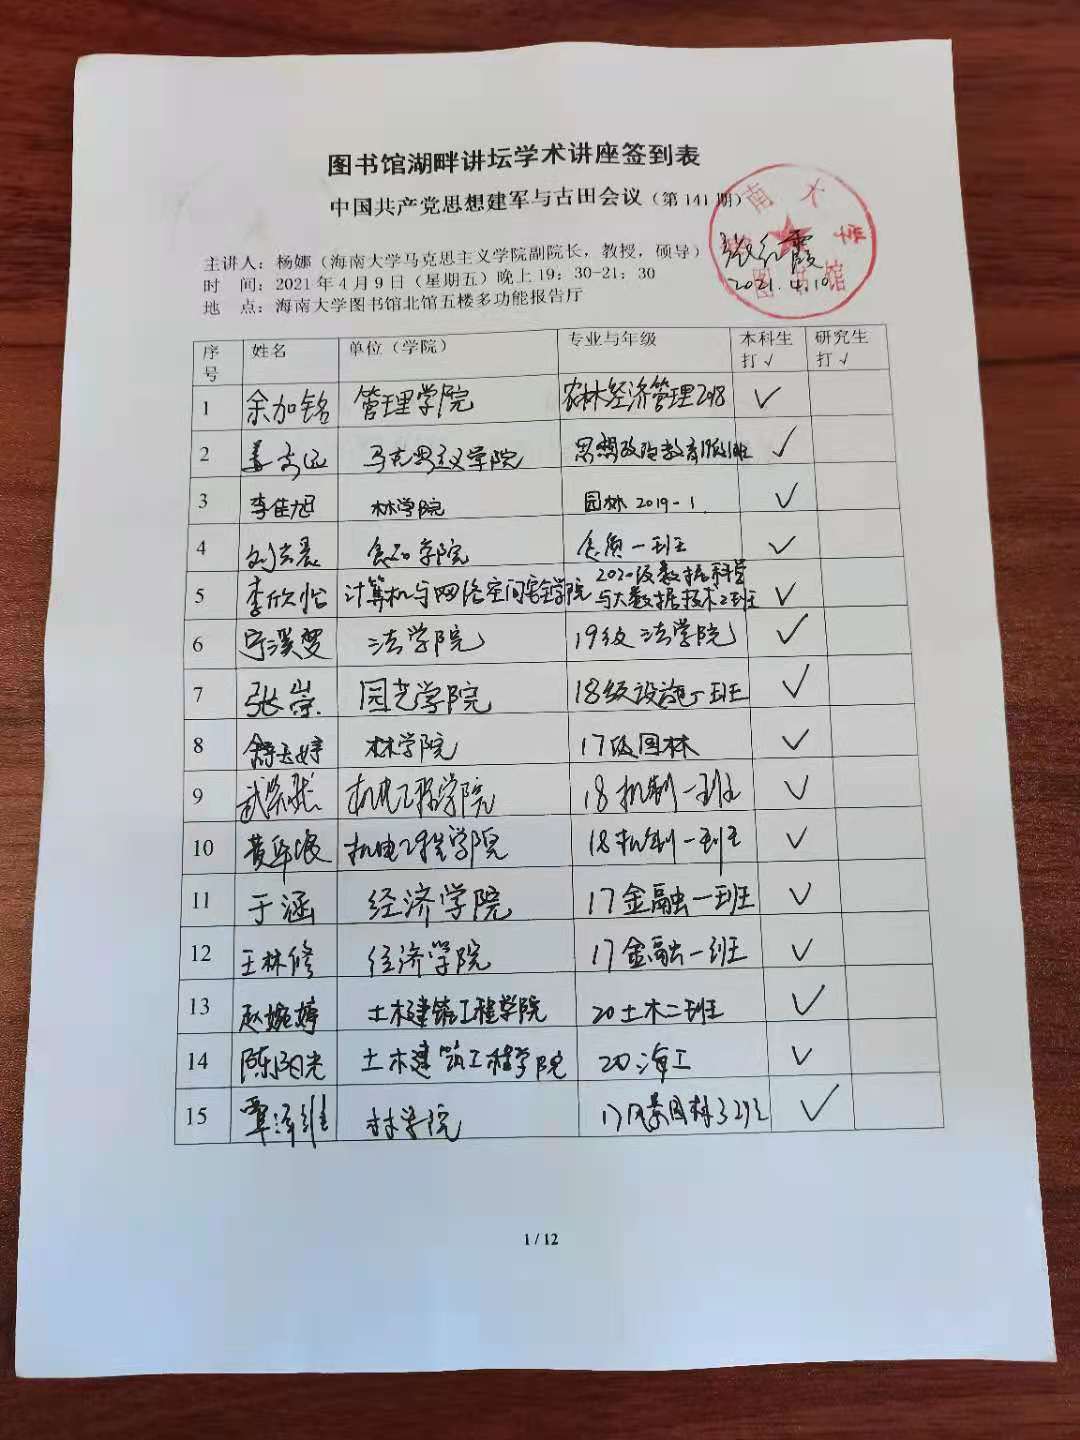 图书馆湖畔讲坛学术讲座签到表
中国共产党思想建军与古田会议（第 141 期）
海南大学
图书馆
张红霞
2021.4.10
主讲人：杨娜（海南大学马克思主义学院副院长，教授，硕导）
时 间：2021 年 4 月 9 日（星期五）晚上 19：30-21：30
地 点：海南大学图书馆北馆五楼多功能报告厅
序号 姓名 单位（学院） 专业与年级 本科生打√ 研究生打√
1 余加铭 管理学院 农林经济管理 √
2 姜志远 马克思主义学院 思想政治教育 √
3 李佳旭 林学院 园林 2019-1 √
4 食品学院 食质一班 √
5 李欣怡 计算机与网络空间安全学院 2020级数据科学与大数据技术2班 √
6 宁溪梦 法学院 19级法学院 √
7 张崇 园艺学院 18级设施一班 √
8 林学院 17级园林 √
9 机电工程学院 18机制一班 √
10 黄年浪 机电工程学院 18机制一班 √
11 于涵 经济学院 17金融一班 √
12 王林修 经济学院 17金融一班 √
13 赵婉婷 土木建筑工程学院 20土木二班 √
14 陈阳光 土木建筑工程学院 20海工 √
15 覃泽维 林学院 17风景园林 √
1 / 12